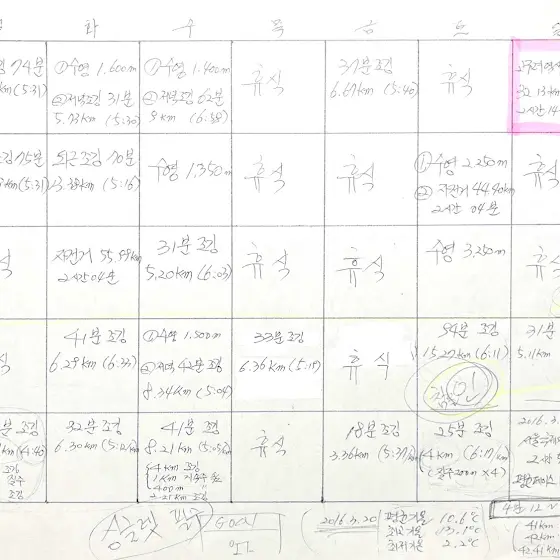 화 수 목 금 토
74분
km (5:31)
① 수영 1,600m
② 저녁조깅 31분
5.73km (5:30)
① 수영 1,400m
② 저녁조깅 62분
9km (6:58)
휴식
37분 조깅
6.67km (5:40)
휴식
32 13km
2시간 14
조깅 75분
km (5:31)
퇴근 조깅 70분
13.38km (5:16)
수영 1,350m
휴식
휴식
① 수영 2,250m
② 자전거 44.40km
2시간 04분
휴식
식
자전거 55.99km
2시간 04분
31분 조깅
5.20km (6:03)
휴식
휴식
수영 3,250m
식
41분 조깅
6.28km (6:33)
① 수영 1,500m
② 저녁 42분 조깅
8.34km (5:04)
33분 조깅
6.36km (5:17)
휴식
94분 조깅
15.27km (6:11)
31분
5.11km
분 조깅
km (4:46)
조깅
질주
조깅
32분 조깅
6.30km (5:12/km)
41분 조깅
8.21km (5:05/km)
4km 조깅
1km 지속주
400m 〃
2.21km 조깅
휴식
18분 조깅
3.36km (5:37/km)
25분 조깅
4km (6:17/km)
(질주 200m ×4)
2016.3.
2시간
평균페이스
2016.3.20
평균기온 10.6℃
최고기온 13.1℃
최저기온 2.2℃
4월 12
41km
42km
42.41km